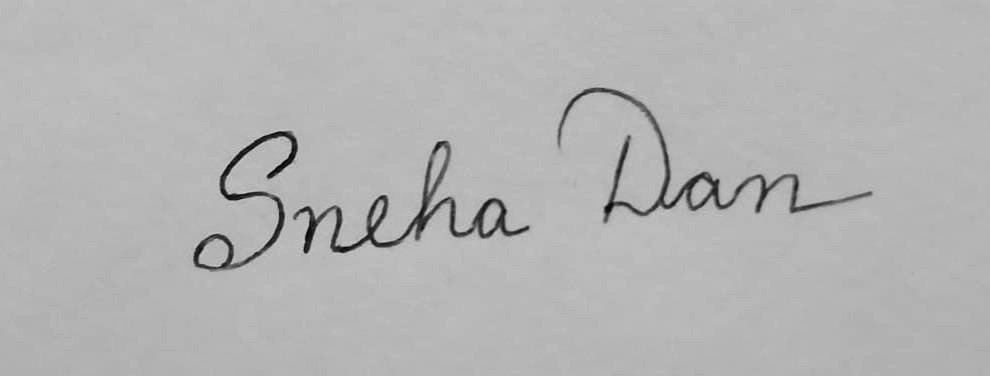 Sneha Dan